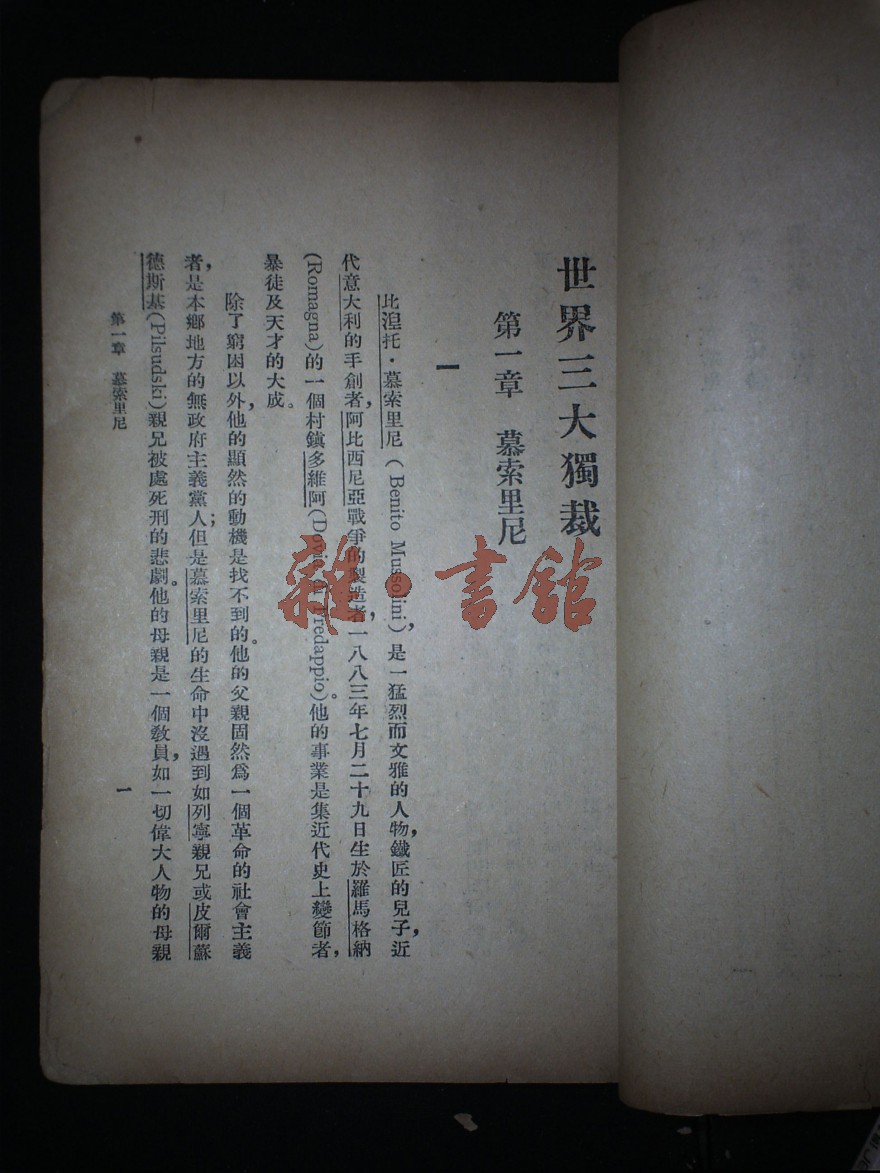 世界三大獨裁
第一章　慕索里尼
一
比湼托·慕索里尼（Benito Mussolini），是一猛烈而文雅的人物，鐵匠的兒子，近
代意大利的手創者，阿比西尼亞戰爭的製造者，一八八三年七月二十九日生於羅馬格納
(Romagna)的一個村鎮多維阿(Dovia di Predappio)。他的事業是集近代史上變節者，
暴徒及天才的大成。
除了窮困以外，他的顯然的動機是找不到的。他的父親固然爲一個革命的社會主義
者，是本鄉地方的無政府主義黨人；但是慕索里尼的生命中沒遇到如列寧親兄或皮爾蘇
德斯基(Pilsudski)親兄被處死刑的悲劇。他的母親是一個教員，如一切偉大人物的母親
第一章　慕索里尼
一
雜·書館